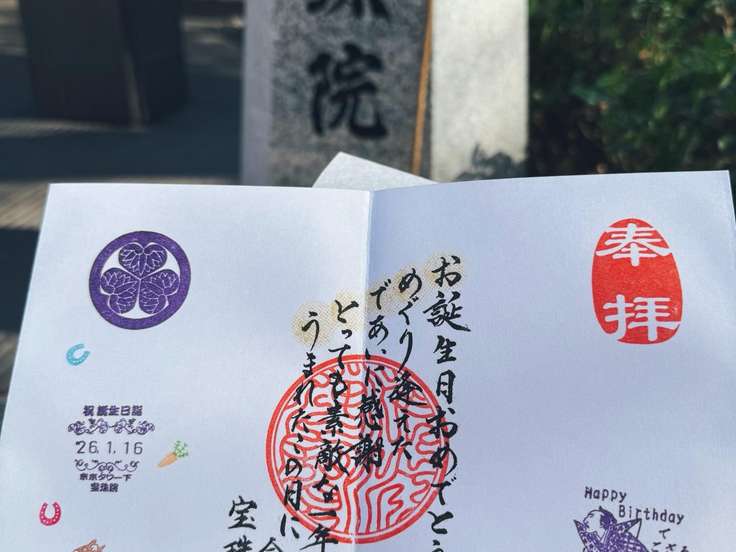 院
奉拝
お誕生日おめでとう
めぐり逢えた
であいに感謝
とっても素敵な一年
うまれたこの月に
宝珠
祝誕生日詣
'26.1.16
東京タワー下
宝珠院
Happy
Birthday
でござ